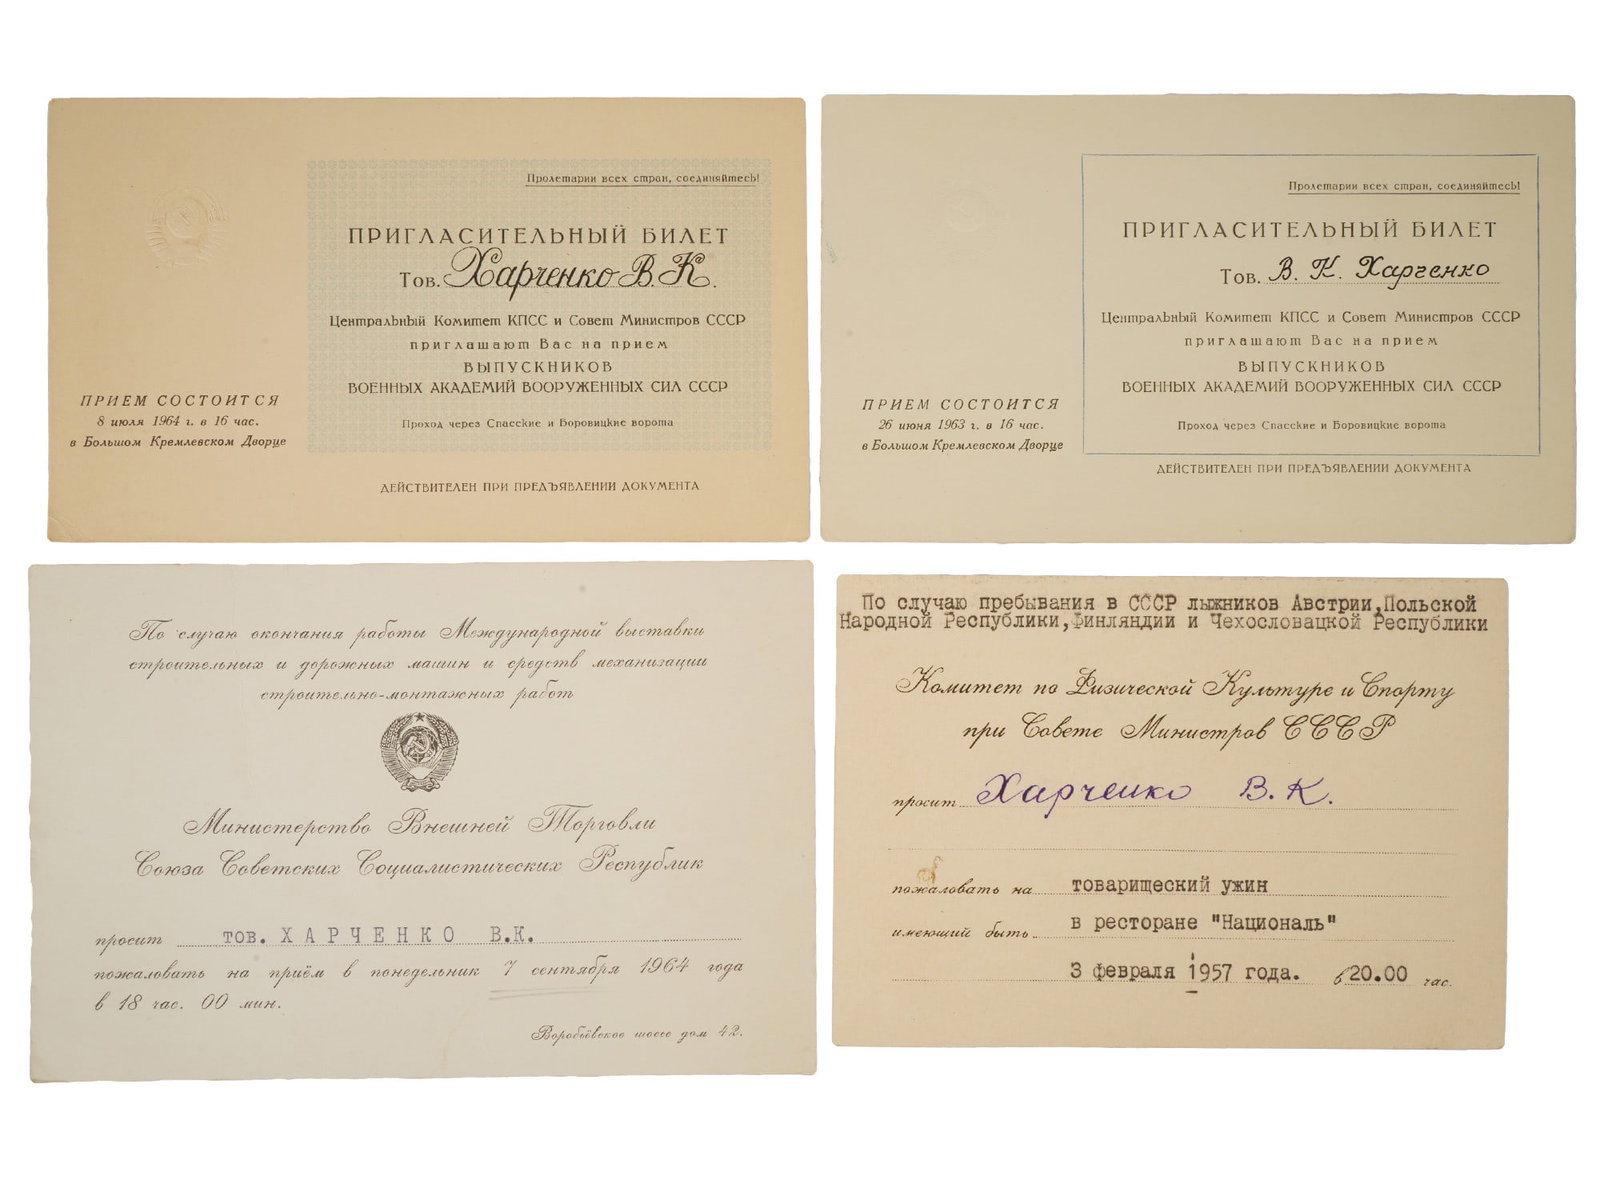 Пролетарии всех стран, соединяйтесь!
ПРИГЛАСИТЕЛЬНЫЙ БИЛЕТ
Тов. Харченко В. К.
Центральный Комитет КПСС и Совет Министров СССР
приглашают Вас на прием
ВЫПУСКНИКОВ
ВОЕННЫХ АКАДЕМИЙ ВООРУЖЕННЫХ СИЛ СССР
Проход через Спасские и Боровицкие ворота
ПРИЕМ СОСТОИТСЯ
8 июля 1964 г. в 16 час.
в Большом Кремлевском Дворце
ДЕЙСТВИТЕЛЕН ПРИ ПРЕДЪЯВЛЕНИИ ДОКУМЕНТА
Пролетарии всех стран, соединяйтесь!
ПРИГЛАСИТЕЛЬНЫЙ БИЛЕТ
Тов. В. К. Харченко
Центральный Комитет КПСС и Совет Министров СССР
приглашают Вас на прием
ВЫПУСКНИКОВ
ВОЕННЫХ АКАДЕМИЙ ВООРУЖЕННЫХ СИЛ СССР
Проход через Спасские и Боровицкие ворота
ПРИЕМ СОСТОИТСЯ
26 июня 1963 г. в 16 час.
в Большом Кремлевском Дворце
ДЕЙСТВИТЕЛЕН ПРИ ПРЕДЪЯВЛЕНИИ ДОКУМЕНТА
По случаю окончания работы Международной выставки
строительных и дорожных машин и средств механизации
строительно-монтажных работ
Министерство Внешней Торговли
Союза Советских Социалистических Республик
просит тов. ХАРЧЕНКО В.К.
пожаловать на приём в понедельник 7 сентября 1964 года
в 18 час. 00 мин.
Воробьёвское шоссе дом 42.
По случаю пребывания в СССР лыжников Австрии,Польской
Народной Республики,Финляндии и Чехословацкой Республики
Комитет по Физической Культуре и Спорту
при Совете Министров СССР
просит Харченко В. К.
пожаловать на товарищеский ужин
имеющий быть в ресторане "Националь"
3 февраля 1957 года. в 20.00 час.